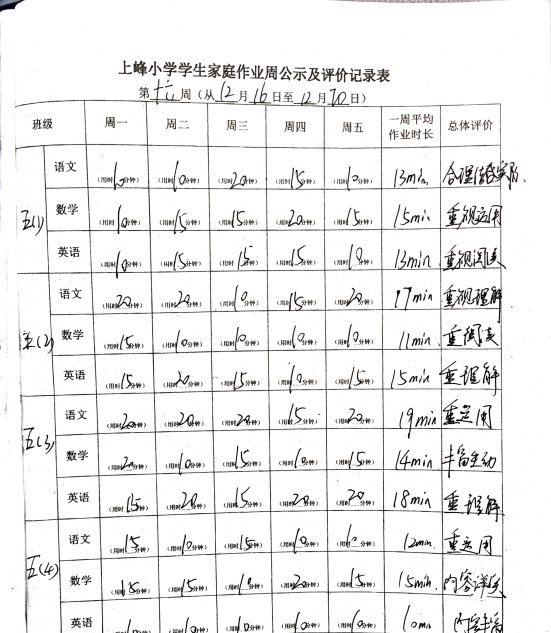 上峰小学学生家庭作业周公示及评价记录表
第十六周（从12月16日至12月20日）
班级 周一 周二 周三 周四 周五 一周平均作业时长 总体评价
五(1) 语文 （用时10分钟） （用时10分钟） （用时20分钟） （用时15分钟） （用时10分钟） 13min 合理
数学 （用时10分钟） （用时15分钟） （用时15分钟） （用时20分钟） （用时15分钟） 15min 重视运用
英语 （用时10分钟） （用时15分钟） （用时15分钟） （用时15分钟） （用时10分钟） 13min 重视阅读
(2) 语文 （用时20分钟） （用时20分钟） （用时10分钟） （用时15分钟） （用时20分钟） 17min 重视理解
数学 （用时15分钟） （用时10分钟） （用时10分钟） （用时10分钟） （用时10分钟） 11min 重阅读
英语 （用时15分钟） （用时20分钟） （用时15分钟） （用时10分钟） （用时15分钟） 15min 重理解
五(3) 语文 （用时20分钟） （用时20分钟） （用时20分钟） （用时15分钟） （用时20分钟） 19min 重运用
数学 （用时20分钟） （用时10分钟） （用时15分钟） （用时10分钟） （用时15分钟） 14min 丰富生动
英语 （用时15分钟） （用时20分钟） （用时15分钟） （用时20分钟） （用时20分钟） 18min 重理解
五(4) 语文 （用时15分钟） （用时10分钟） （用时15分钟） （用时10分钟） （用时10分钟） 12min 重运用
数学 （用时15分钟） （用时15分钟） （用时10分钟） （用时20分钟） （用时15分钟） 15min 内容详实
英语 （用时10分钟） （用时10分钟） （用时10分钟） （用时10分钟） （用时10分钟） 10min 内容丰富